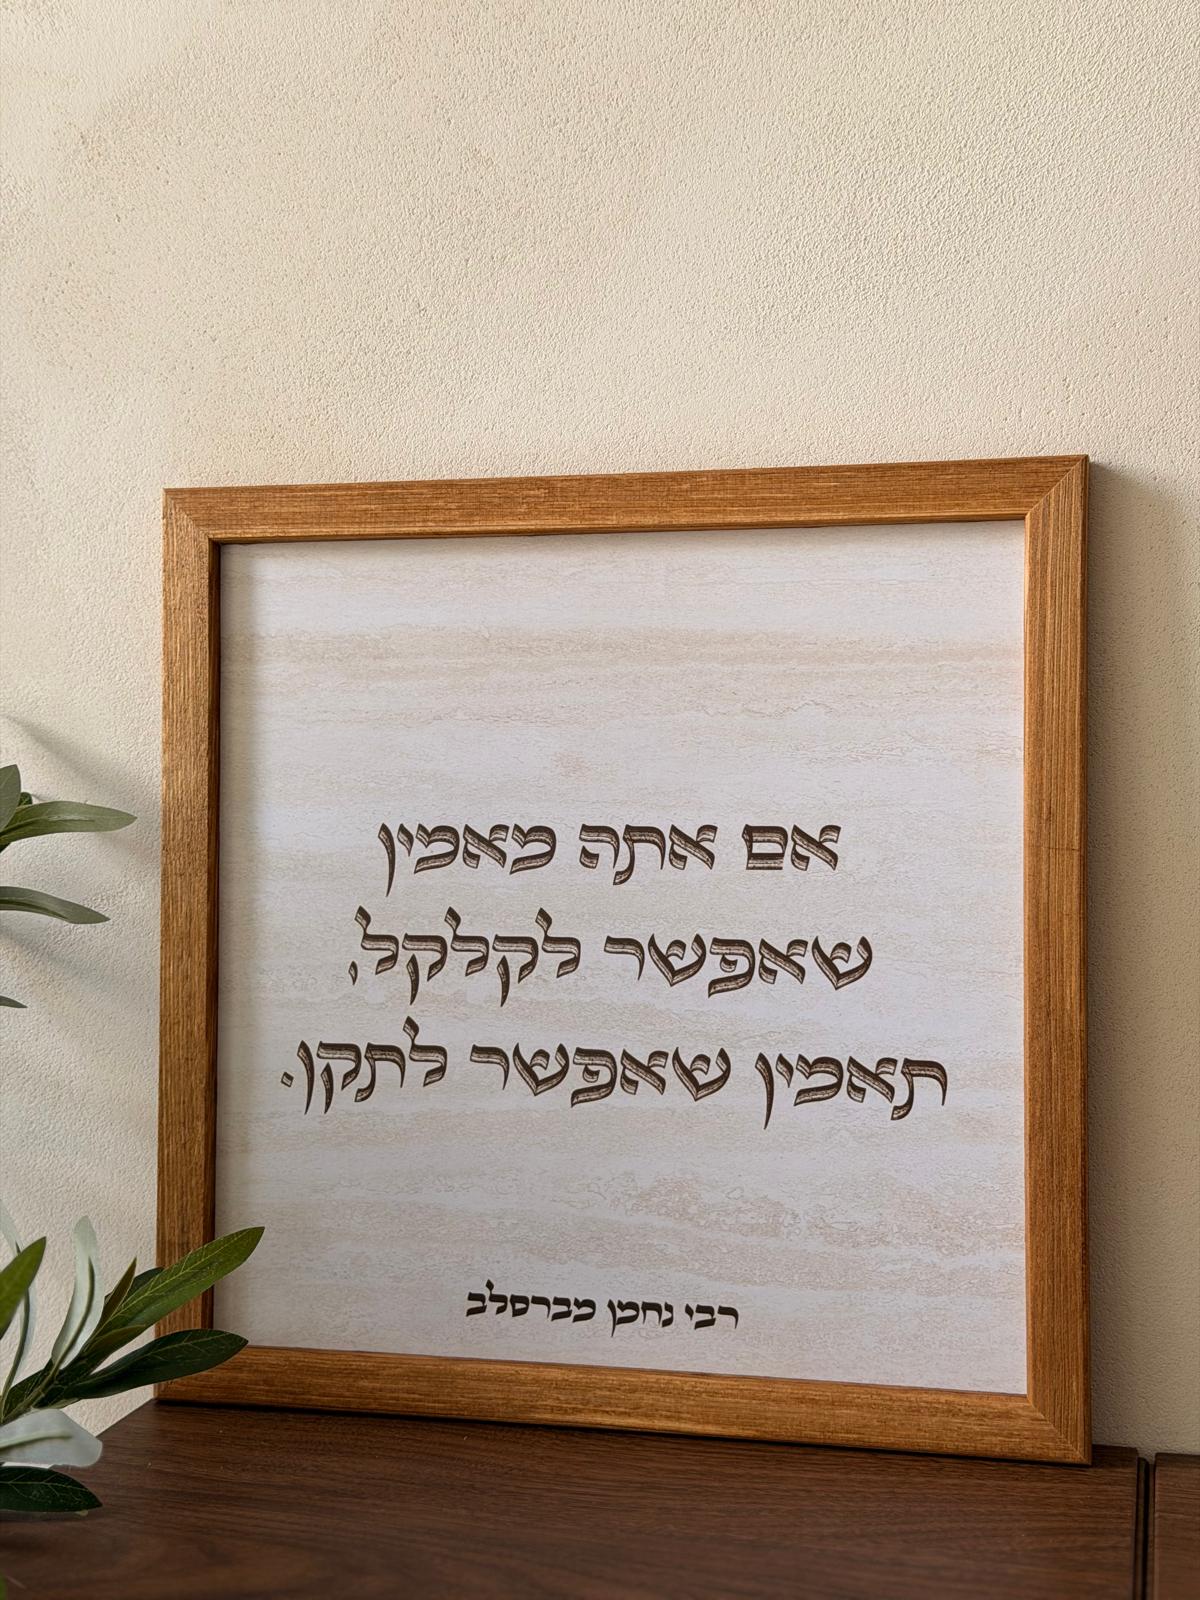 אם אתה מאמין
שאפשר לקלקל,
תאמין שאפשר לתקן.
רבי נחמן מברסלב